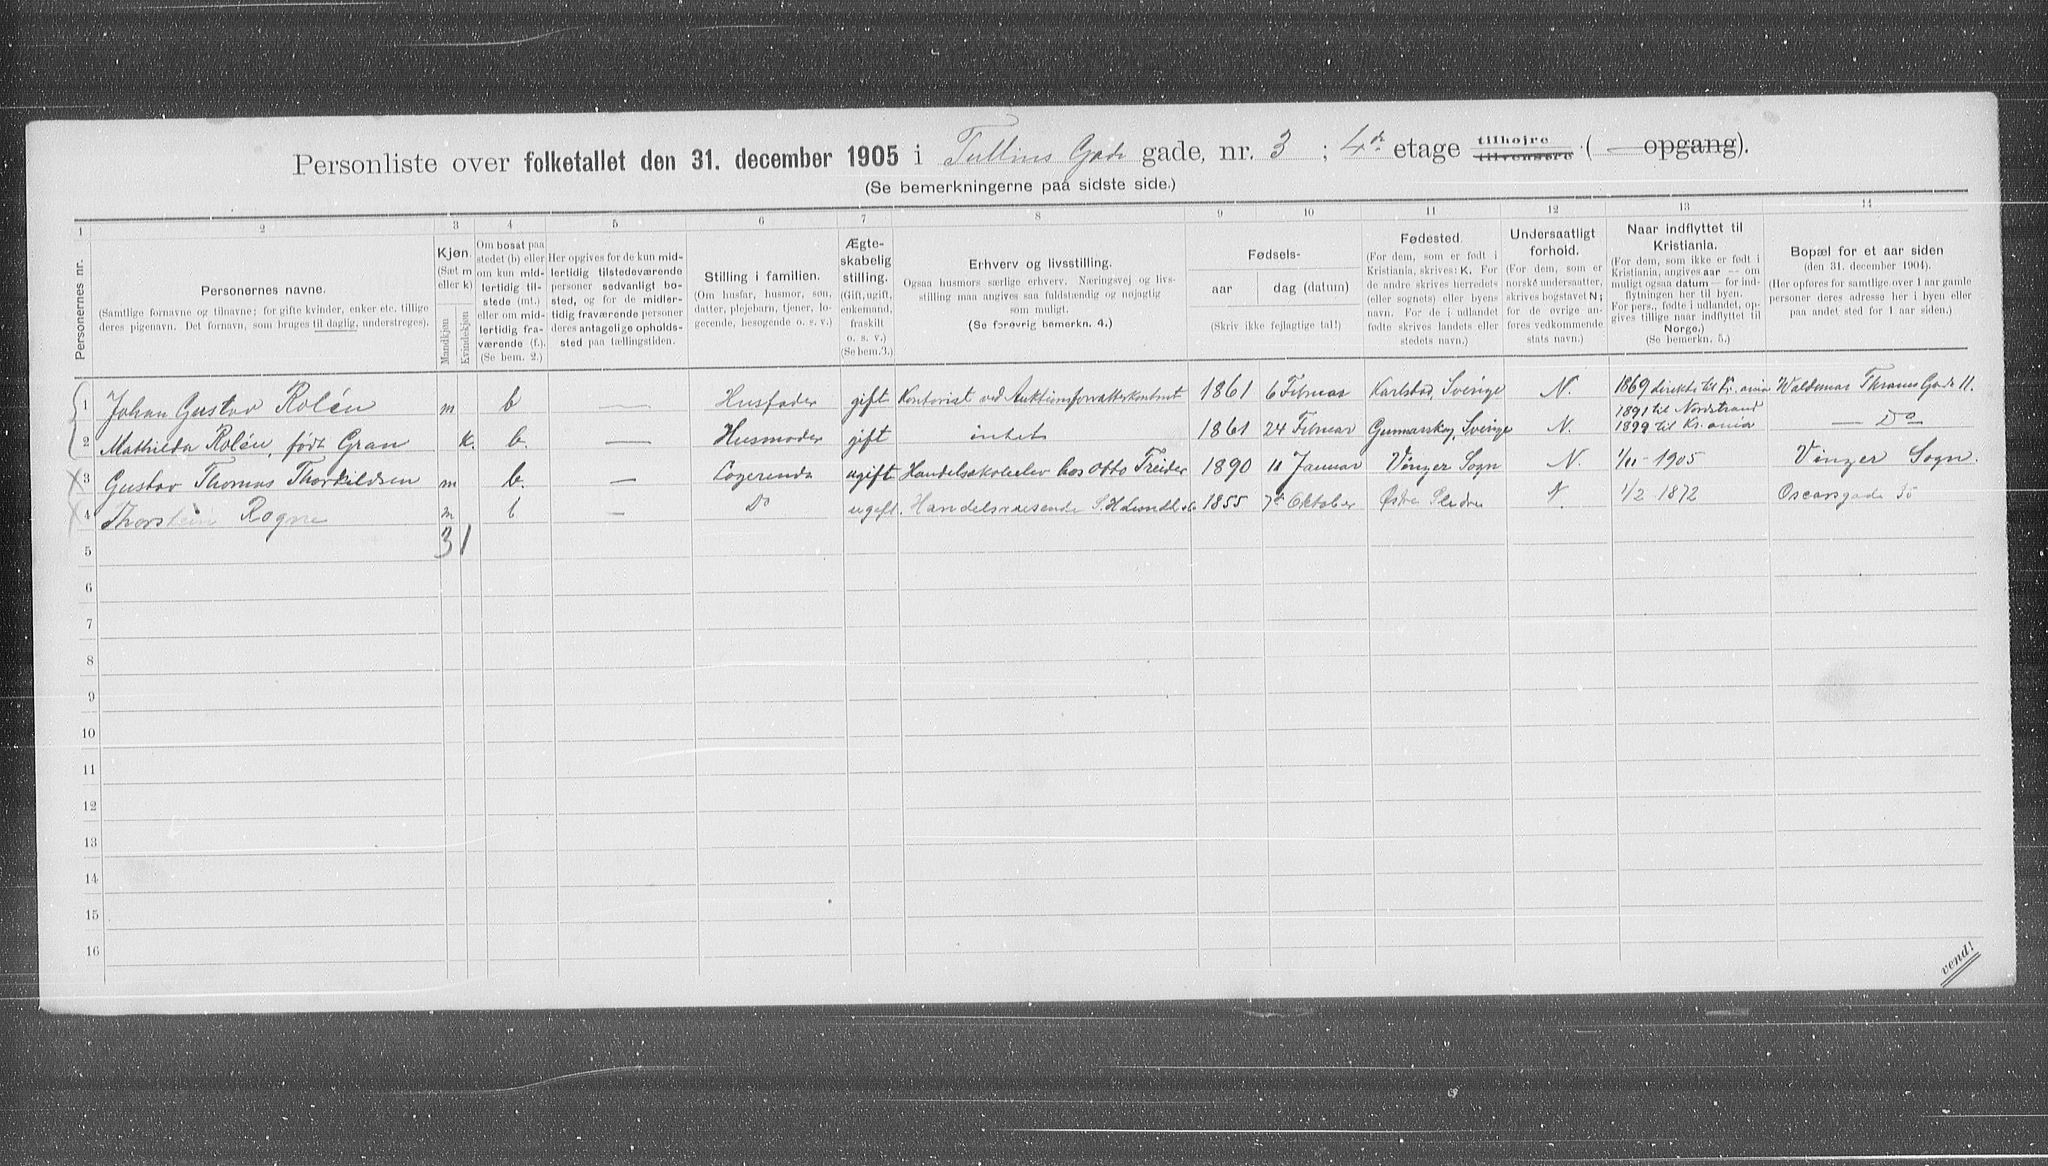 Personliste over folketallet den 31. december 1905 i Tullins Gade gade, nr. 3 ; 4de etage tilhøjre tilvenstre ( — opgang).
(Se bemerkningerne paa sidste side.)
1 2 3 4 5 6 7 8 9 10 11 12 13 14
Personernes nr.
Personernes navne.
(Samtlige fornavne og tilnavne; for gifte kvinder, enker etc. tillige
deres pigenavn. Det fornavn, som bruges til daglig, understreges).
Kjøn.
(Sæt m
eller k)
Mandkjøn
Kvindekjøn
Om bosat paa
stedet (b) eller
om kun mid-
lertidig til-
stede (mt.)
eller om mid-
lertidig fra-
værende (f.).
(Se bem. 2.)
Her opgives for de kun mid-
lertidig tilstedeværende
personer sedvanligt bo-
sted, og for de midler-
tidig fraværende personer
deres antagelige opholds-
sted paa tællingstiden.
Stilling i familien.
(Om husfar, husmor, søn,
datter, plejebarn, tjener, lo-
gerende, besøgende o. s. v.)
Ægte-
skabelig
stilling.
(Gift, ugift,
enkemand,
fraskilt
o. s. v.)
(Se bem. 3.)
Erhverv og livsstilling.
Ogsaa husmors særlige erhverv. Næringsvej og livs-
stilling maa angives saa fuldstændig og nøjagtig
som muligt.
(Se forøvrig bemerkn. 4.)
Fødsels-
aar dag (datum)
(Skriv ikke fejlagtige tal!)
Fødested.
(For dem, som er født i
Kristiania, skrives: K. For
de andre skrives herredets
(eller sognets) eller byens
navn. For de i udlandet
fødte skrives landets eller
stedets navn.)
Undersaatligt
forhold.
(For dem, som er
norske undersaatter,
skrives bogstavet N;
for de øvrige an-
føres vedkommende
stats navn.)
Naar indflyttet til
Kristiania.
(For dem, som ikke er født i
Kristiania, angives aar — om
muligt ogsaa datum — for ind-
flytningen her til byen.
For pers., fødte i udlandet, op-
gives tillige naar indflyttet til
Norge.)
(Se bemerkn. 5.)
Bopæl for et aar siden
(den 31. december 1904).
(Her opføres for samtlige over 1 aar gamle
personer deres adresse her i byen eller
paa andet sted for 1 aar siden.)
1 Johan Gustav Rolén m b — Husfader gift Kontorist ved Auktionsforvalterkontoret 1861 6 Februar Karlstad, Sverige N. 1869 direkte til Kr.ania Waldemar Thranes Gade 11.
1891 til Nordstrand
2 Mathilda Rolén, født Gran k. b. — Husmoder gift intet 1861 24 Februar Gunnarskog, Sverige N. 1899 til Kr.ania — Do
3 Gustav Thomas Thorkildsen m b. — Logerende ugift Handelsskoleelev hos Otto Treider 1890 11 Januar Vinger Sogn N. 1/11-1905 Vinger Sogn.
4 Thorstein Rogne m b — Do ugift. Handelsreisende 1855 7de Oktober Østre Slidre N. 1/2-1872 Oscarsgade 50
5 3 1
6
7
8
9
10
11
12
13
14
15
16
vend!